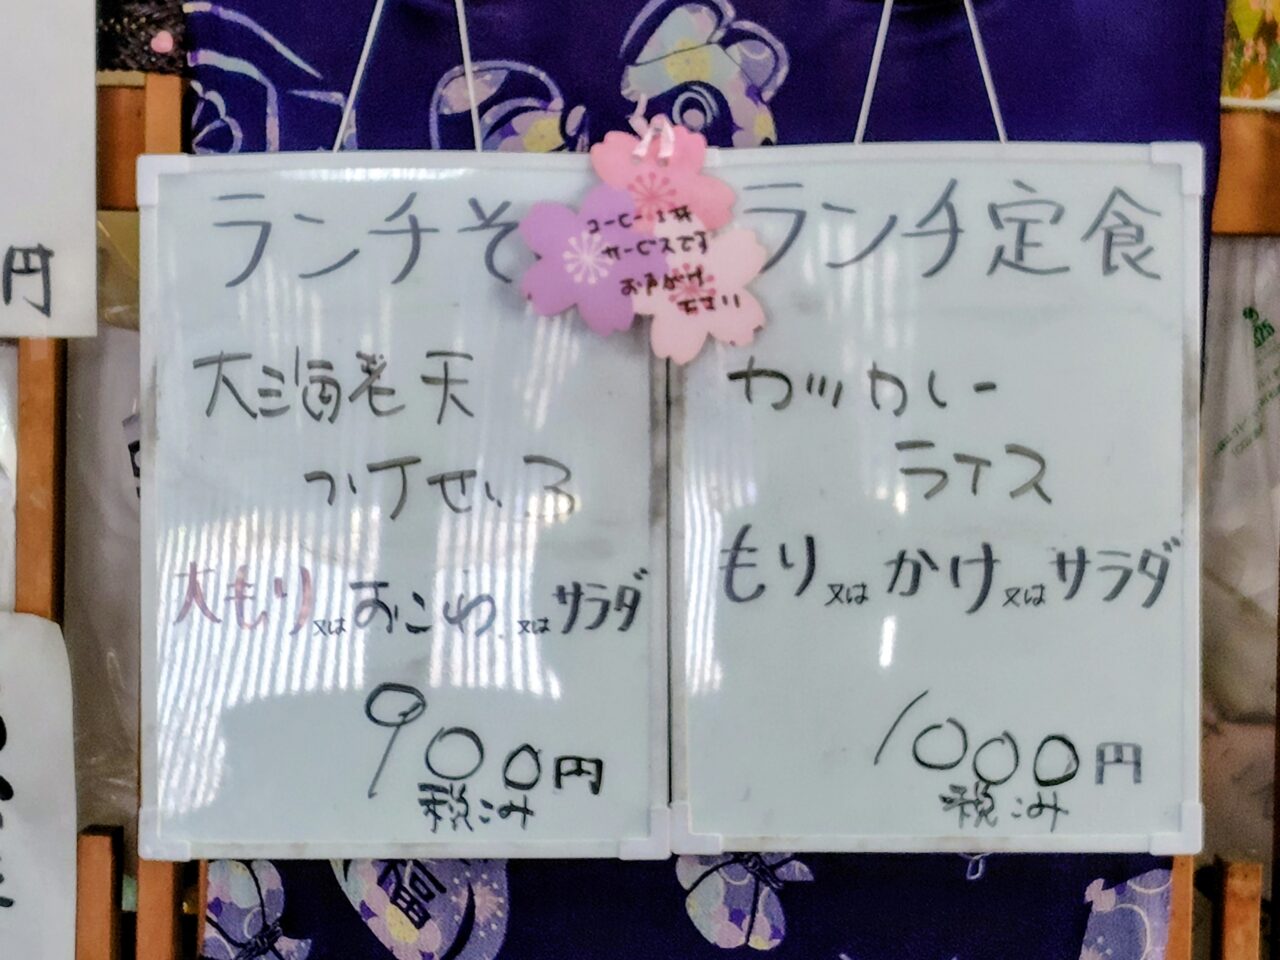 円
ランチそ
大海老天
つけせいろ
大もり又はおこわ又はサラダ
900円
税こみ
コーヒー1杯
サービスです
お声がけ
下さい
ランチ定食
カツカレー
ライス
もり又はかけ又はサラダ
1000円
税こみ